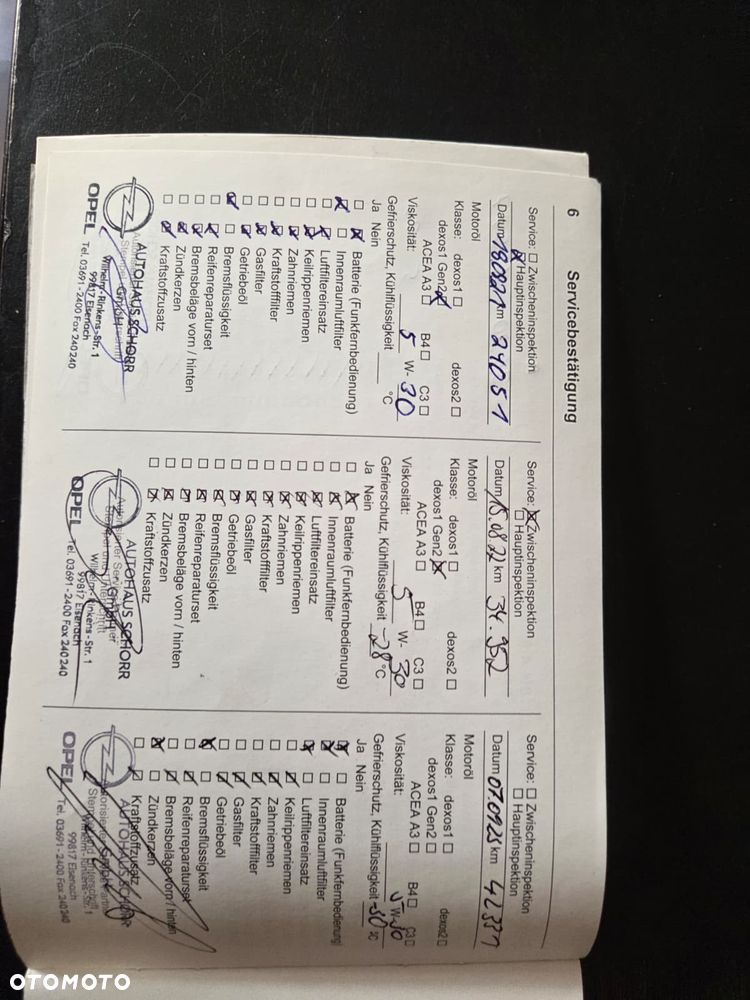 6
Servicebestätigung
Service: ☐ Zwischeninspektion
☒ Hauptinspektion
Datum 180821 km 24051
Motoröl
Klasse: dexos1 ☐ dexos2 ☐
dexos1 Gen2 ☒
ACEA A3 ☐ B4 ☐ C3 ☐
Viskosität: 5 W- 30
Gefrierschutz, Kühlflüssigkeit °C
Ja Nein
☐ ☒ Batterie (Funkfernbedienung)
☒ ☐ Innenraumluftfilter
☐ ☒ Luftfiltereinsatz
☐ ☒ Keilrippenriemen
☐ ☒ Zahnriemen
☐ ☒ Kraftstofffilter
☐ ☒ Gasfilter
☐ ☒ Getriebeöl
☒ ☐ Bremsflüssigkeit
☐ ☒ Reifenreparaturset
☐ ☒ Bremsbeläge vorn / hinten
☐ ☒ Zündkerzen
☐ ☒ Kraftstoffzusatz
AUTOHAUS SCHORR
GmbH
Wilhelm-Rinkens-Str. 1
99817 Eisenach
OPEL Tel. 03691-2400 Fax 240240
Service: ☒ Zwischeninspektion
☐ Hauptinspektion
Datum 15.08.22 km 34.352
Motoröl
Klasse: dexos1 ☐ dexos2 ☐
dexos1 Gen2 ☒
ACEA A3 ☐ B4 ☐ C3 ☐
Viskosität: 5 W- 30
Gefrierschutz, Kühlflüssigkeit -28 °C
Ja Nein
☐ ☒ Batterie (Funkfernbedienung)
☐ ☒ Innenraumluftfilter
☐ ☒ Luftfiltereinsatz
☐ ☒ Keilrippenriemen
☐ ☒ Zahnriemen
☐ ☒ Kraftstofffilter
☐ ☒ Gasfilter
☐ ☒ Getriebeöl
☐ ☒ Bremsflüssigkeit
☐ ☒ Reifenreparaturset
☐ ☒ Bremsbeläge vorn / hinten
☐ ☒ Zündkerzen
☐ ☒ Kraftstoffzusatz
AUTOHAUS SCHORR
GmbH
Wilhelm-Rinkens-Str. 1
99817 Eisenach
OPEL Tel. 03691-2400 Fax 240240
Service: ☐ Zwischeninspektion
☐ Hauptinspektion
Datum 07.09.23 km 42331
Motoröl
Klasse: dexos1 ☐ dexos2 ☐
dexos1 Gen2 ☐
ACEA A3 ☐ B4 ☐ C3 ☐
Viskosität: 5 W- 30
Gefrierschutz, Kühlflüssigkeit -30 °C
Ja Nein
☒ ☐ Batterie (Funkfernbedienung)
☒ ☐ Innenraumluftfilter
☒ ☐ Luftfiltereinsatz
☐ ☒ Keilrippenriemen
☐ ☒ Zahnriemen
☐ ☒ Kraftstofffilter
☐ ☒ Gasfilter
☐ ☒ Getriebeöl
☒ ☐ Bremsflüssigkeit
☐ ☒ Reifenreparaturset
☐ ☒ Bremsbeläge vorn / hinten
☒ ☐ Zündkerzen
☐ ☒ Kraftstoffzusatz
AUTOHAUS SCHORR
99817 Eisenach
OPEL Tel. 03691-2400 Fax 240240
OTOMOTO